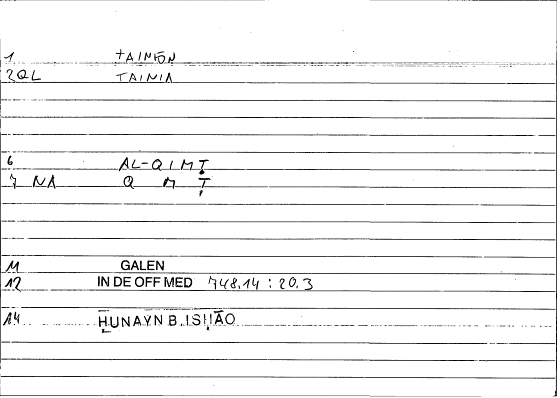 1 TAINIŌN
2 QL TAINIA
6 AL-QIMṬ
7 NA Q M Ṭ
11 GALEN
12 IN DE OFF MED 748.14 : 20.3
14 ḤUNAYN B. ISḤĀQ